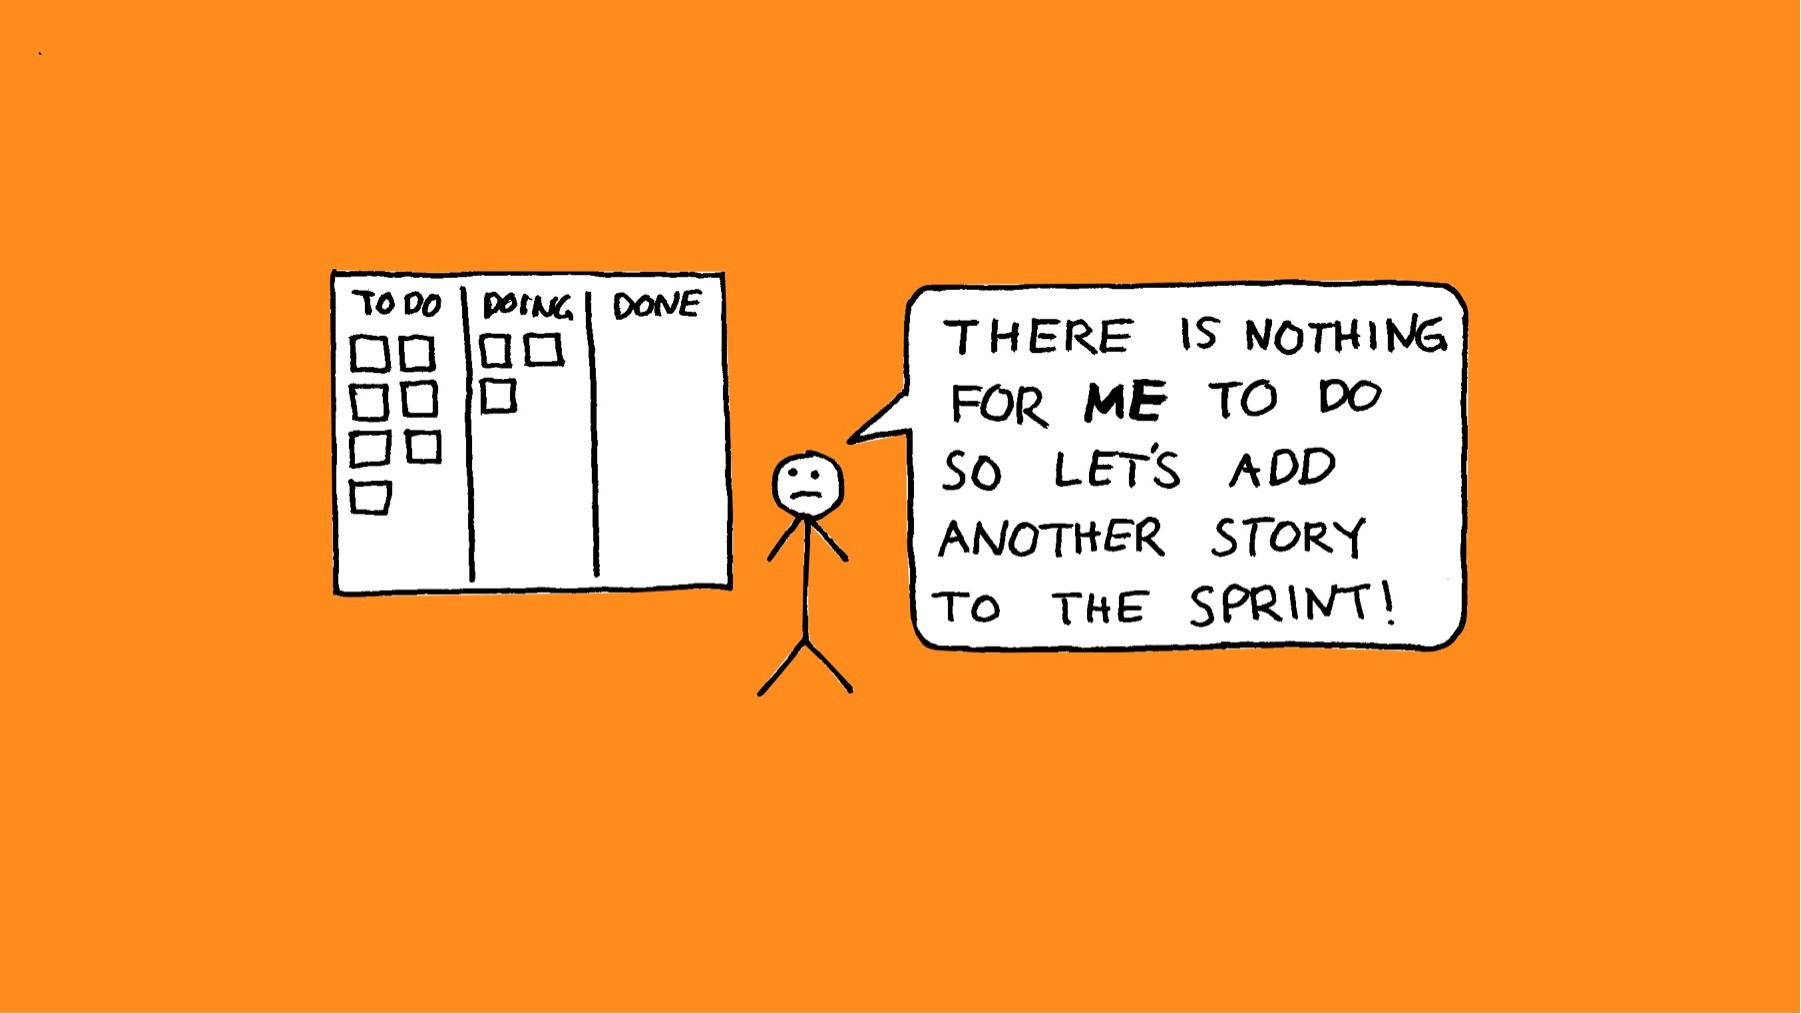 TO DO
DOING
DONE
THERE IS NOTHING
FOR ME TO DO
SO LET'S ADD
ANOTHER STORY
TO THE SPRINT!